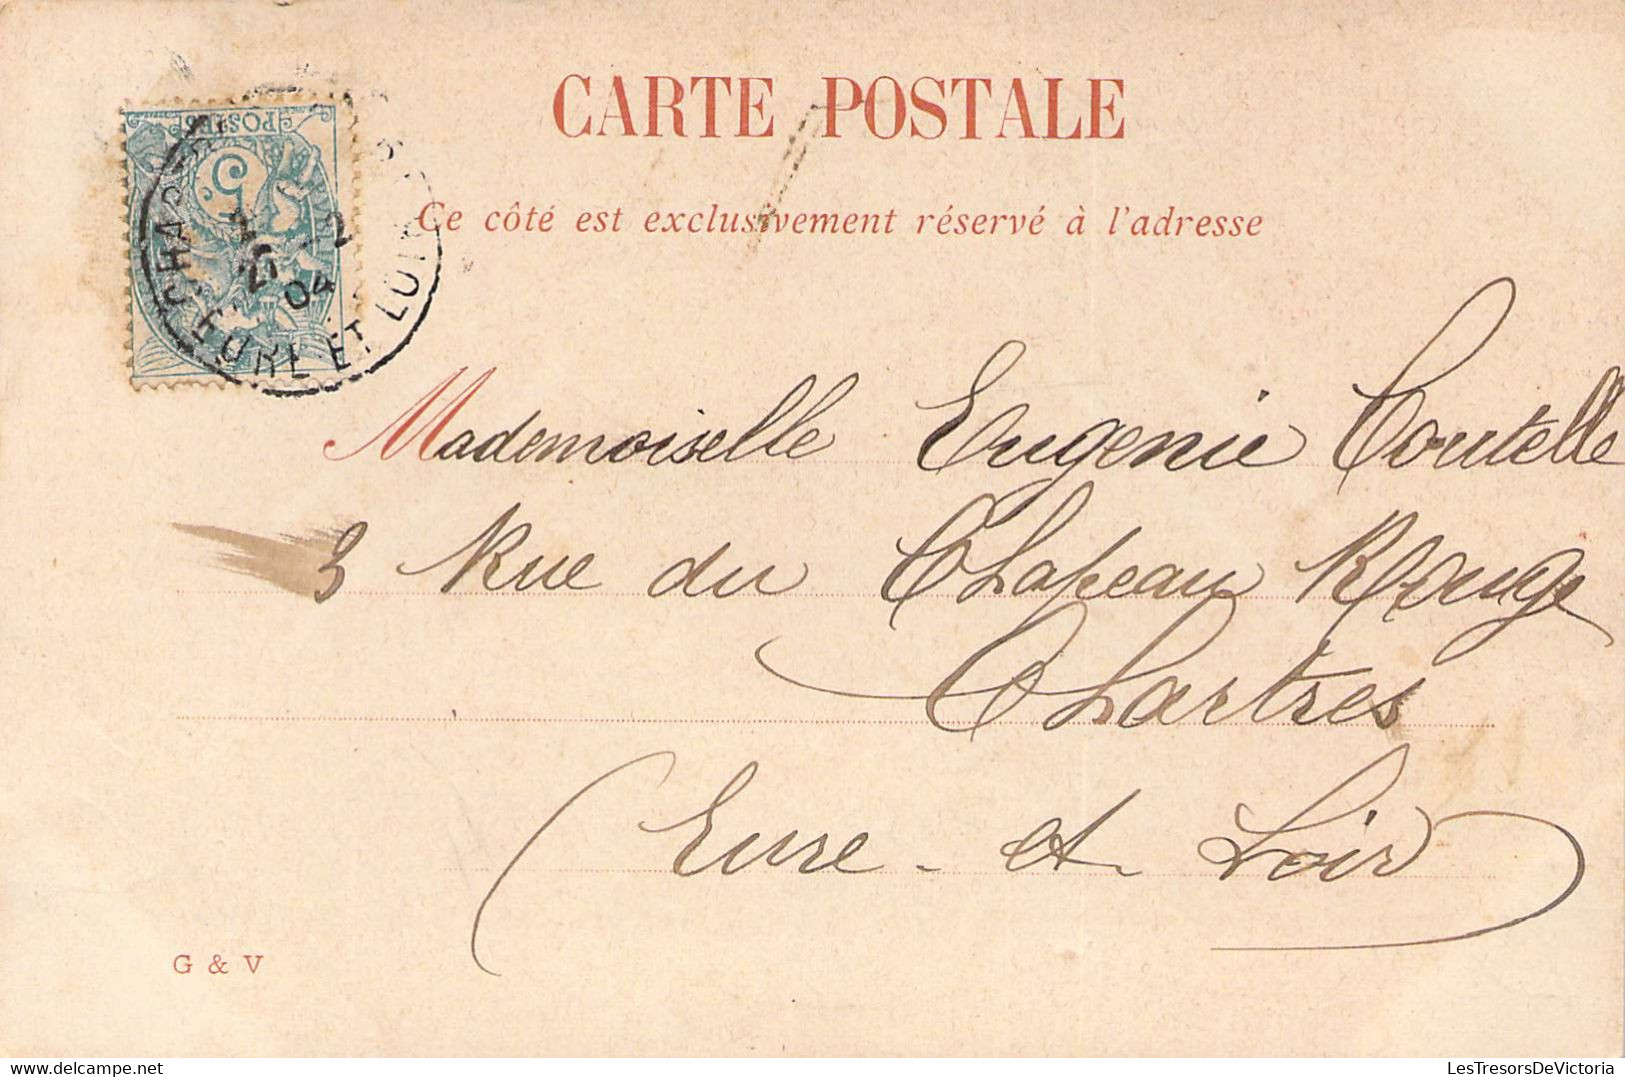 CARTE POSTALE
Ce côté est exclusivement réservé à l'adresse
POSTES
5c
21 -2
04
EURE ET LOIR
Mademoiselle Eugenie Coutelle
3 Rue du Chapeau Rouge
Chartres
Eure - et - Loir
G & V
LesTresorsDeVictoria